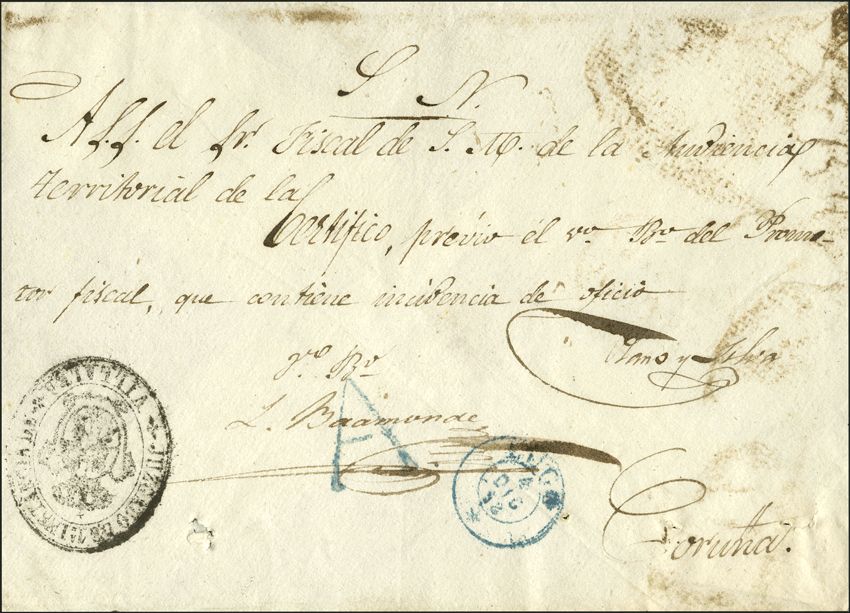 S. N.
Al S. el Sr. Fiscal de S. M. de la Audiencia
territorial de la
Certifico, prévio el vo. Bo. del Promo-
tor fiscal, que contiene incidencia de oficio
y Silva
Vo. Bo.
L. Baamonde
A
JUZGADO DE 1ª
VILLALBA
Coruña.